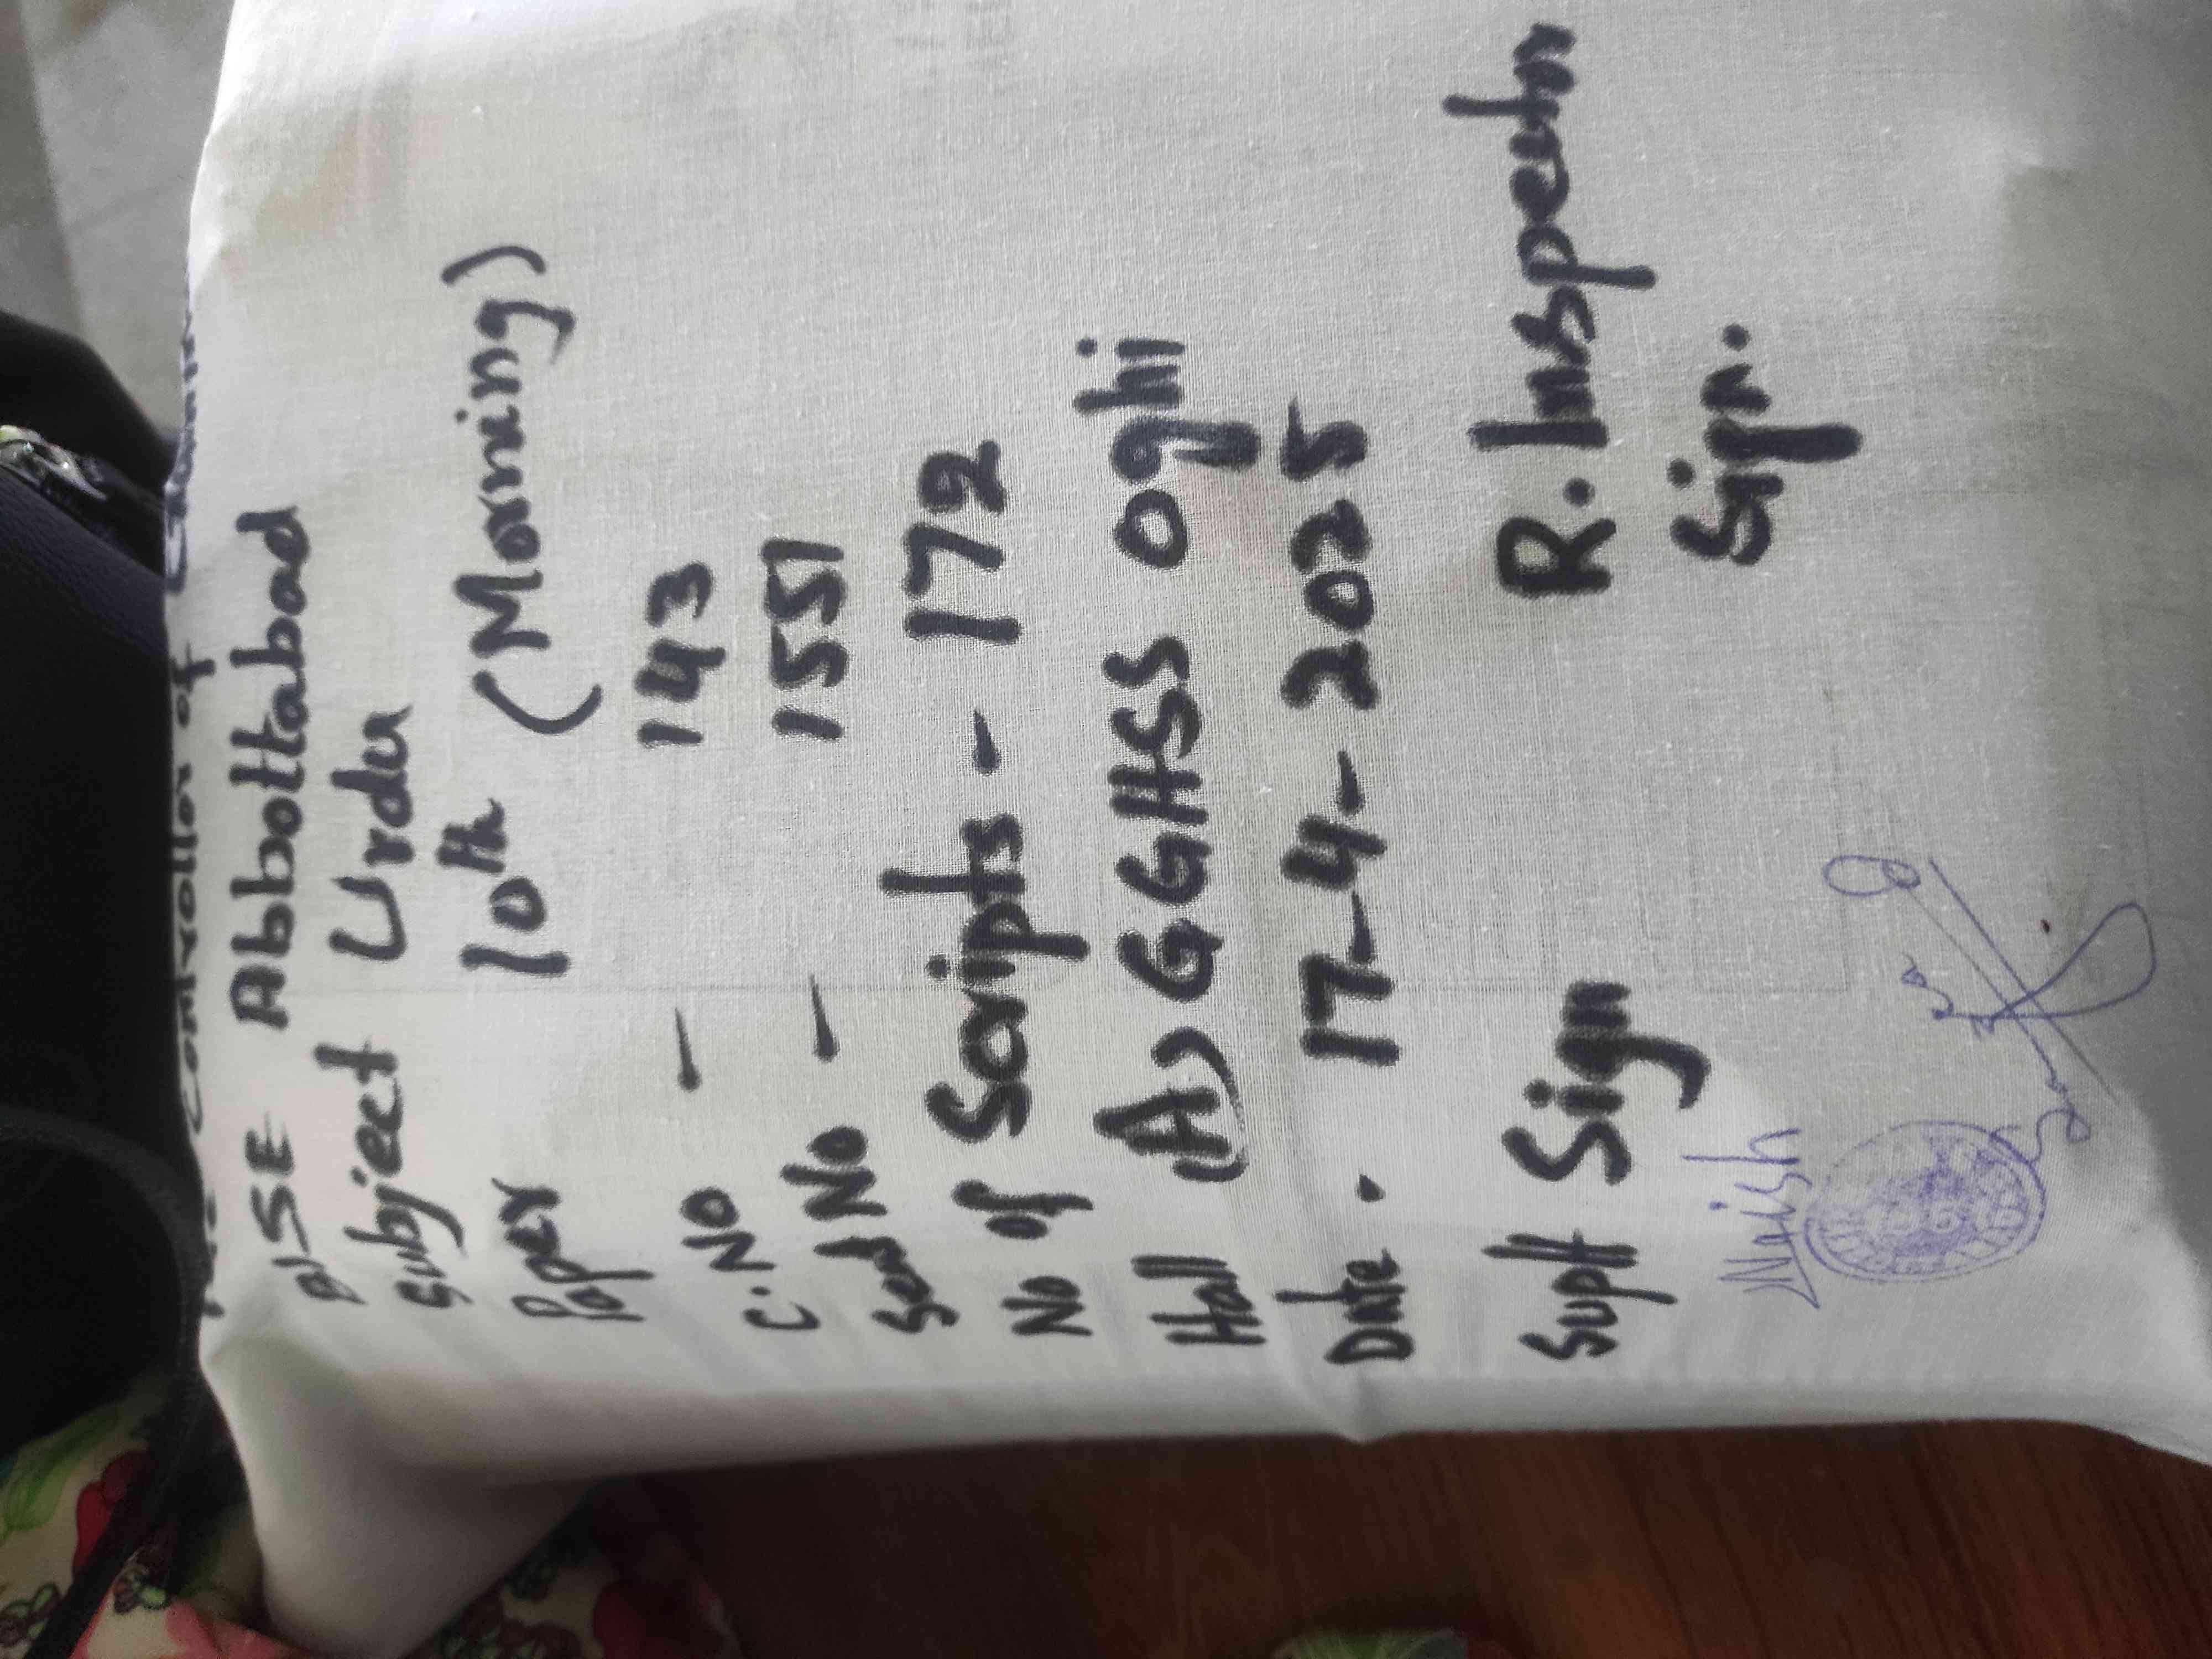 The Controller of Examin
BISE Abbottabad
Subject Urdu
Paper 10th (Morning)
C.No - 143
Seal No - 1551
No of Scripts - 172
Hall (A) GGHSS Oghi
Date. 17-4-2025
Supdt Sign R. Inspector
Sign.